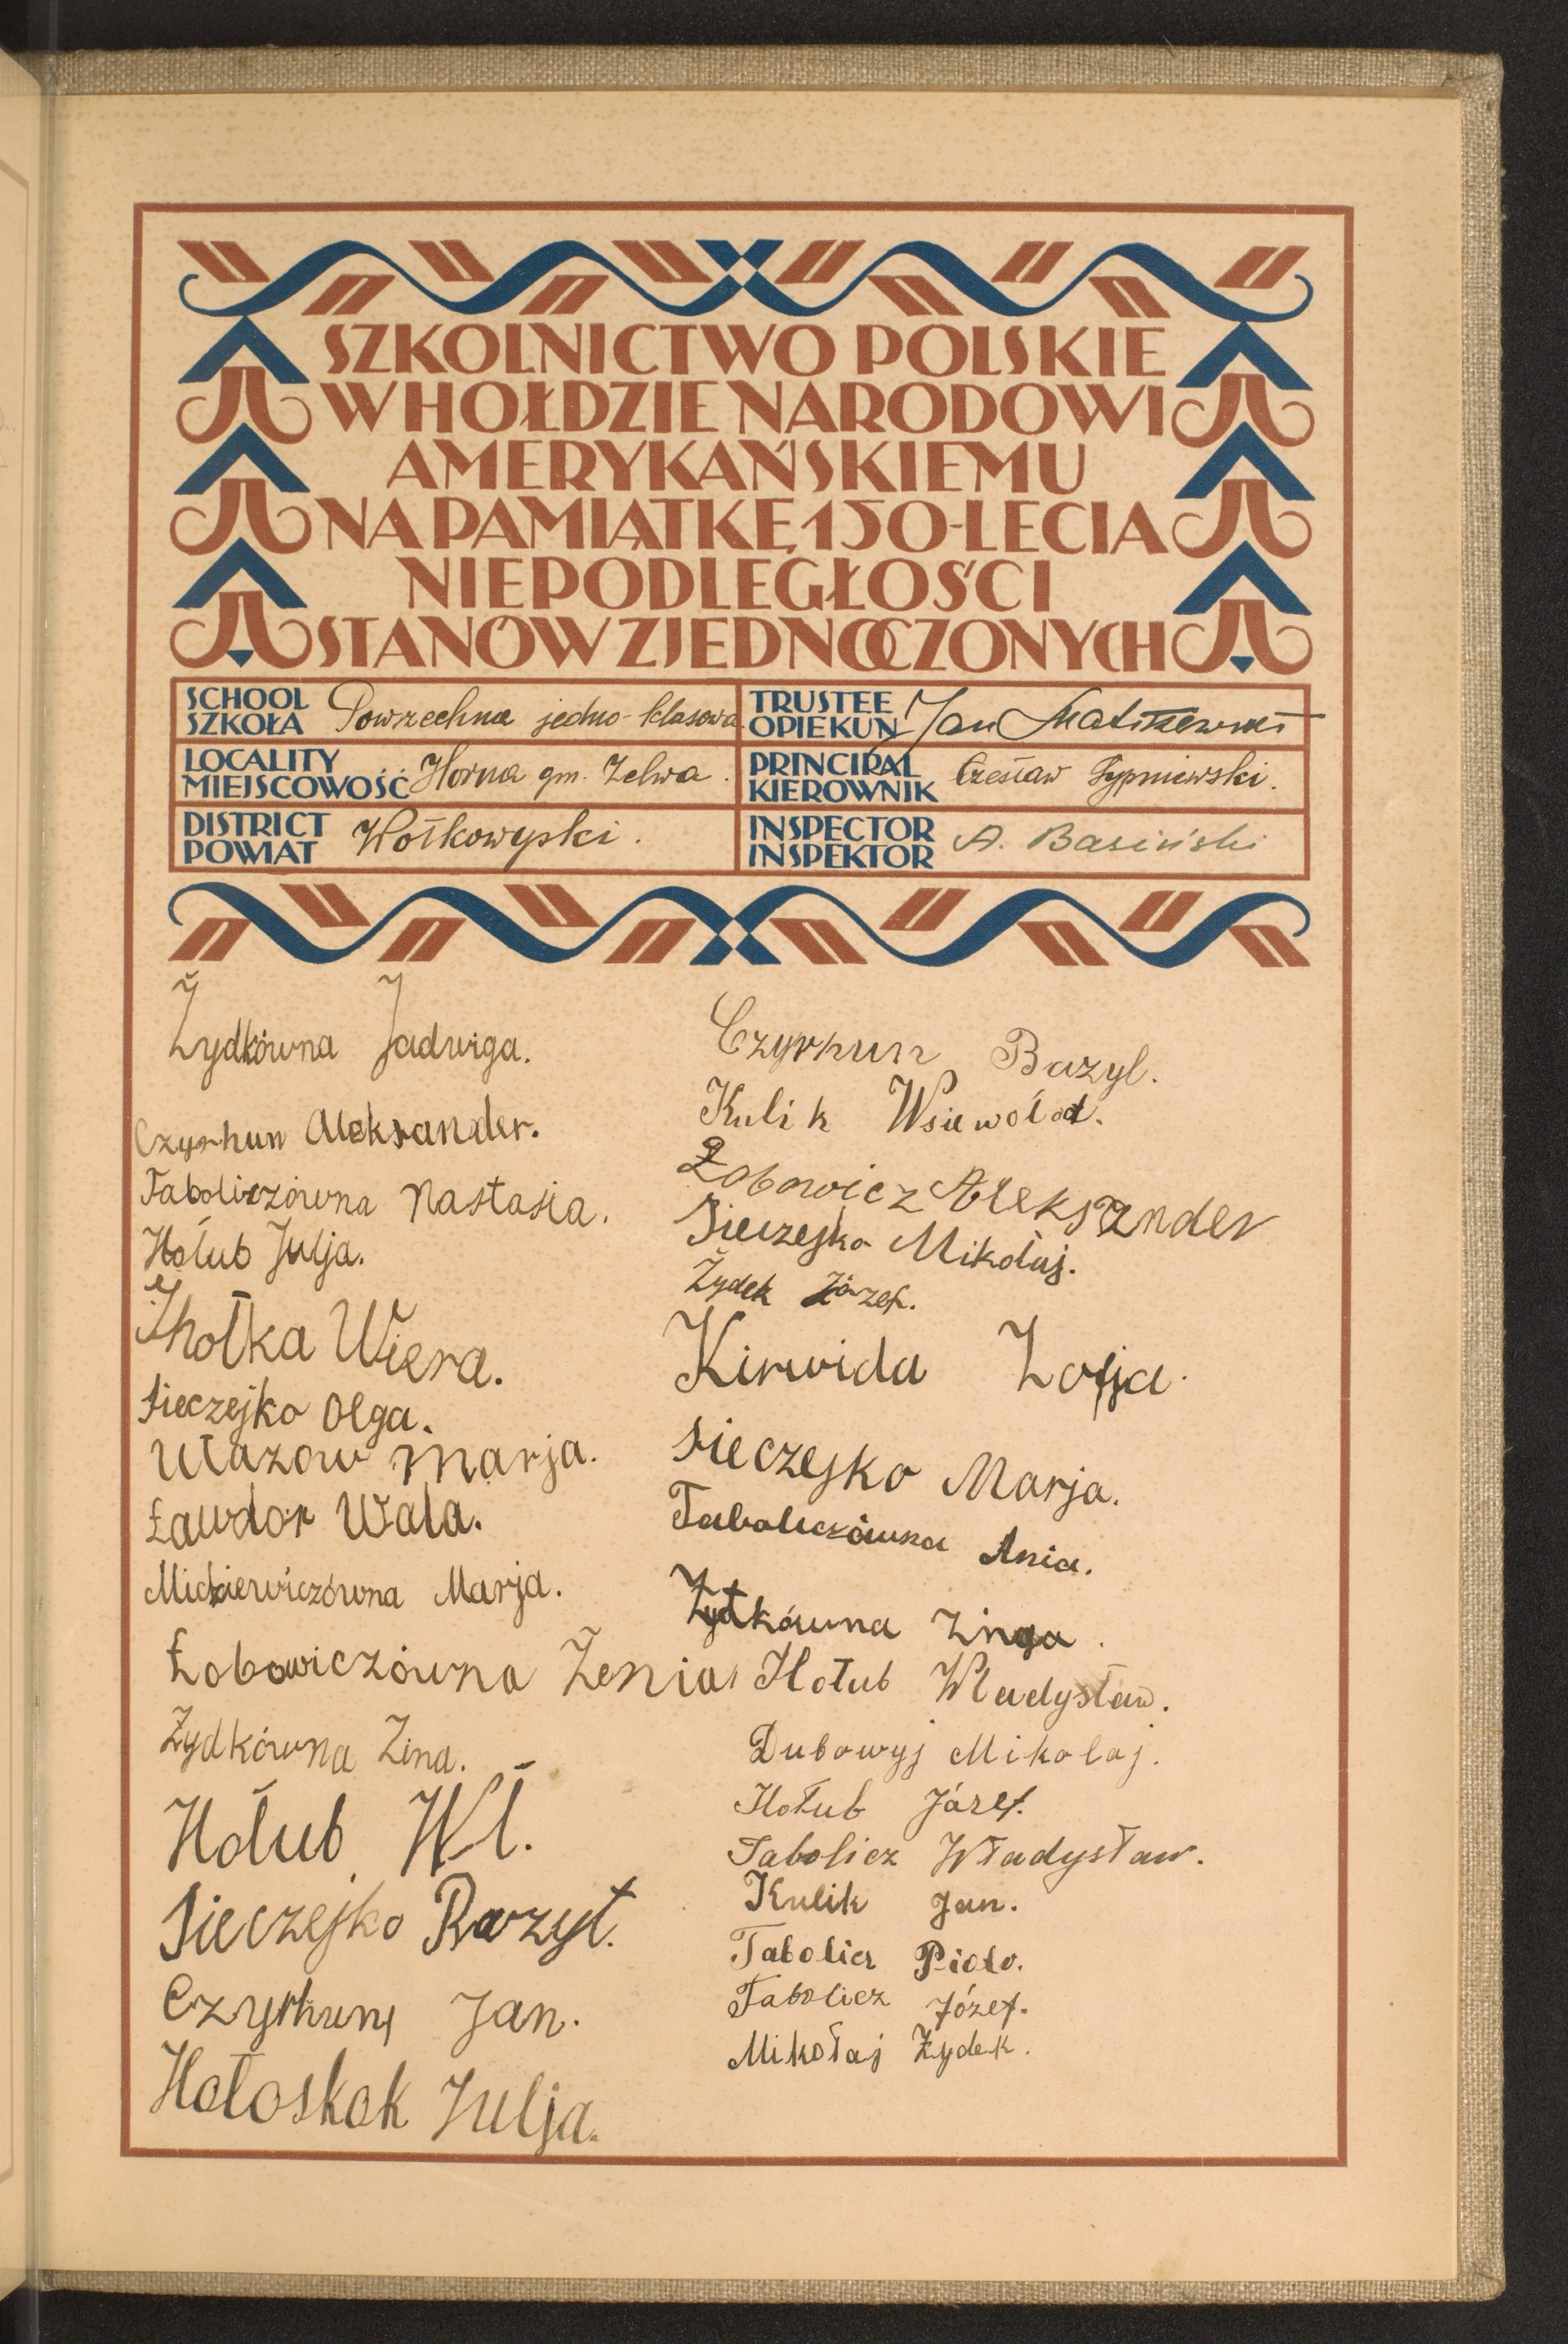 SZKOLNICTWO POLSKIE
W HOŁDZIE NARODOWI
AMERYKAŃSKIEMU
NA PAMIĄTKĘ 150-LECIA
NIEPODLEGŁOŚCI
STANÓW ZJEDNOCZONYCH
SCHOOL
SZKOŁA Powszechna jedno-klasowa
TRUSTEE
OPIEKUN Jan Matiszewski
LOCALITY
MIEJSCOWOŚĆ Horna gm. Zelwa.
PRINCIPAL
KIEROWNIK Czesław Sypniewski.
DISTRICT
POWIAT Wołkowyski.
INSPECTOR
INSPEKTOR A. Basiński
Żydkówna Jadwiga.
Czyrhun Aleksander.
Taboliczówna Nastasia.
Hołub Julja.
Ihołka Wiera.
Sieczejko Olga.
Ułazow Marja.
Ławdor Wala.
Mickiewiczówna Marja.
Łobowiczówna Żenia.
Żydkówna Zina.
Hołub Wł.
Sieczejko Bazyl.
Czyrhun Jan.
Hołoskok Julja.
Czyrhun Bazyl.
Kulik Wsiewołod.
Łobowicz Aleksander
Sieczejko Mikołaj.
Żydek Józef.
Kirwida Zofja.
Sieczejko Marja.
Taboliczówna Ania.
Żydkówna
Hołub Władysław.
Dubowyj Mikolaj.
Hołub Józef.
Tabolicz Władysław.
Kulik Jan.
Tabolicz Piotr.
Tabolicz Józef.
Mikołaj Żydek.